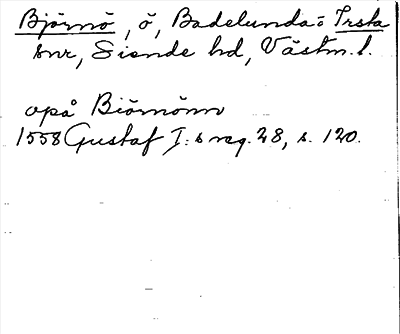 Björnö, ö, Badelunda = Irsta
snr, Siende hd, Västm. l.
opå Biörnönn
1558 Gustaf I:s reg. 28, s. 120.